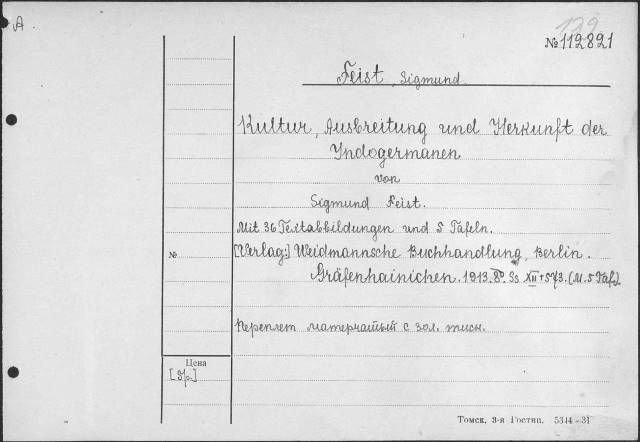 A
139
№ 112821
Feist, Sigmund.
Kultur, Ausbreitung und Herkunft der
Indogermanen
von
Sigmund Feist.
Mit 36 Textabbildungen und 5 Tafeln.
№
[Verlag:] Weidmannsche Buchhandlung, Berlin.
Gräfenhainichen. 1913. 8° Ss XII+573. (M. 5 Taf.)
Переплет матерчатый с зол. тисн.
Цена
[3р.]
Томск, 3-я Гостип. 5344—31